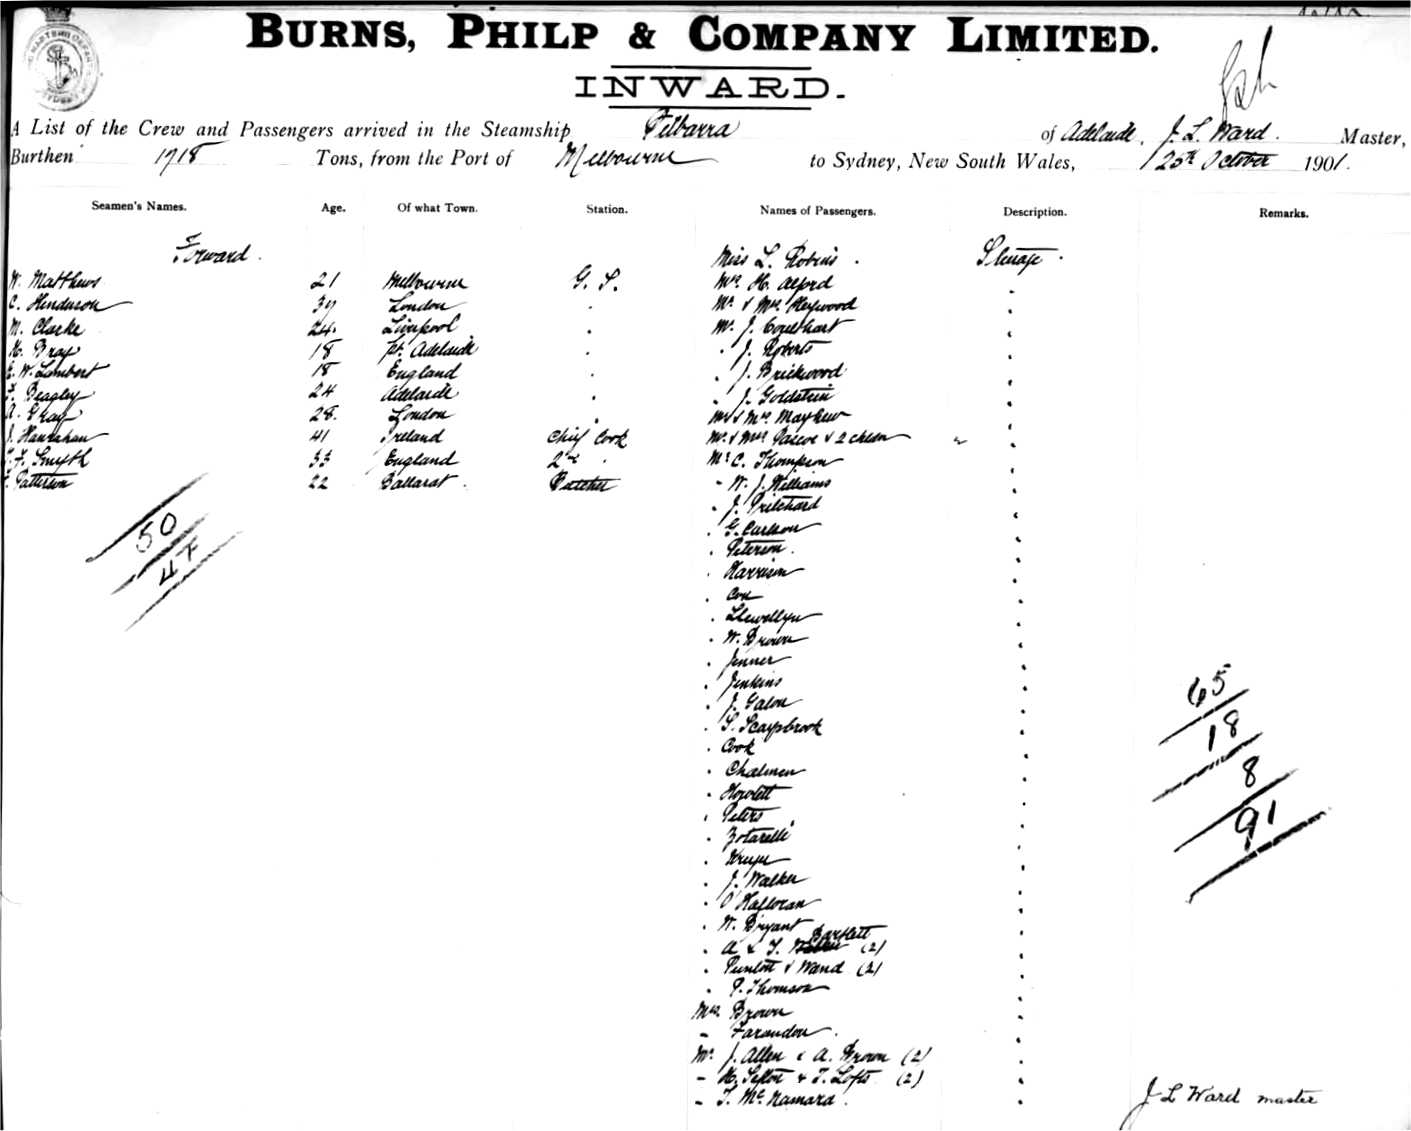 BURNS, PHILP & COMPANY LIMITED.
INWARD.
A List of the Crew and Passengers arrived in the Steamship Pilbarra of Adelaide, J. L. Ward. Master,
Burthen 1718 Tons, from the Port of Melbourne to Sydney, New South Wales, 25th October 1901.
Seamen's Names. Age. Of what Town. Station. Names of Passengers. Description. Remarks.
Forward. Miss L. Robins. Steerage.
W. Matthews 21 Melbourne G. S. Mrs. H. Alford "
C. Henderson 37 London " Mr. & Mrs. Heywood "
M. Clarke 24 Liverpool " Mr. J. Coulthart "
H. Bray 18 Pt. Adelaide " " J. Roberts "
E. W. Lambert 18 England " " J. Brickwood "
F. Beagley 24 Adelaide " J. Goldstein "
A. Gray 28 London " Mr & Mrs Mayhew "
J. Hanrahan 41 Ireland Chief Cook Mr. & Mrs. Pascoe & 2 children "
F. Smyth 33 England 2nd " Mr C. Thompson "
Patterson 22 Ballarat Butcher " W. J. Williams "
" J. Pritchard "
50 " G. Carlson "
47 " Peterson "
" Harrison "
" Cox "
" Llewellyn "
" W. Brown "
" Jenner "
" Jenkins "
65 " J. Galon "
18 " S. Scarpbrook "
8 " Cook "
91 " Chalmer "
" Howlett "
" Peters "
" Zotarelli "
" Kruger "
" J. Walker "
" O'Halloran "
" W. Bryant "
" A & T. Bartlett (2) "
" & Wand (2) "
" P. Thomson "
Mrs. Brown "
" Farandon "
Mr. J. Allen & A. Brown (2) "
" H. Sefton & T. Lofts (2) "
" T. McNamara "
J L Ward master